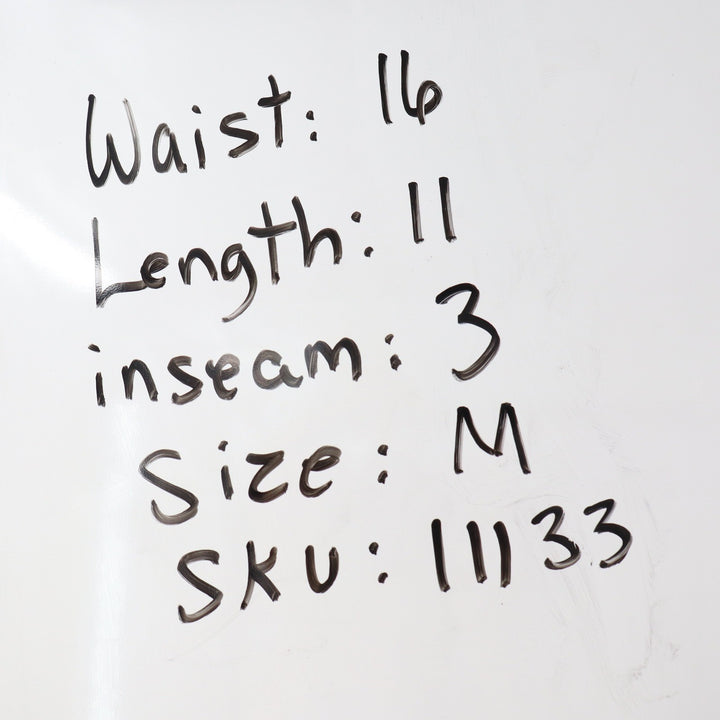 Waist: 16
Length: 11
inseam: 3
Size: M
SKU: 11133